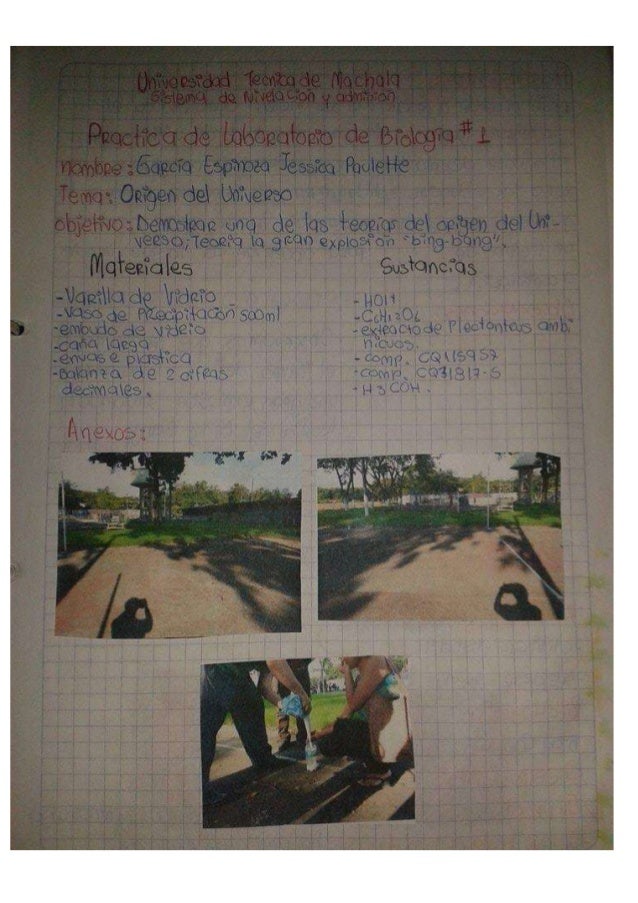 Universidad Tecnica de Machala
Sistema de Nivelacion y admision
Practica de Laboratorio de Biologia # 1
nombre: Garcia Espinoza Jessica Paulette
Tema: Origen del Universo
objetivo: Demostrar una de las teorias del origen del Uni-
verso; Teoria la gran explosion "bing-bang".
Materiales
- Varilla de Vidrio
- Vaso de Precipitación 500ml
- embudo de vidrio
- caña larga
- envase plastica
- Balanza de 2 cifras
decimales.
Sustancias
- C6H12O6
- extracto de
nicuos.
- comp. CQ115957
- comp. CQ31817-S
- H3COH.
Anexos: